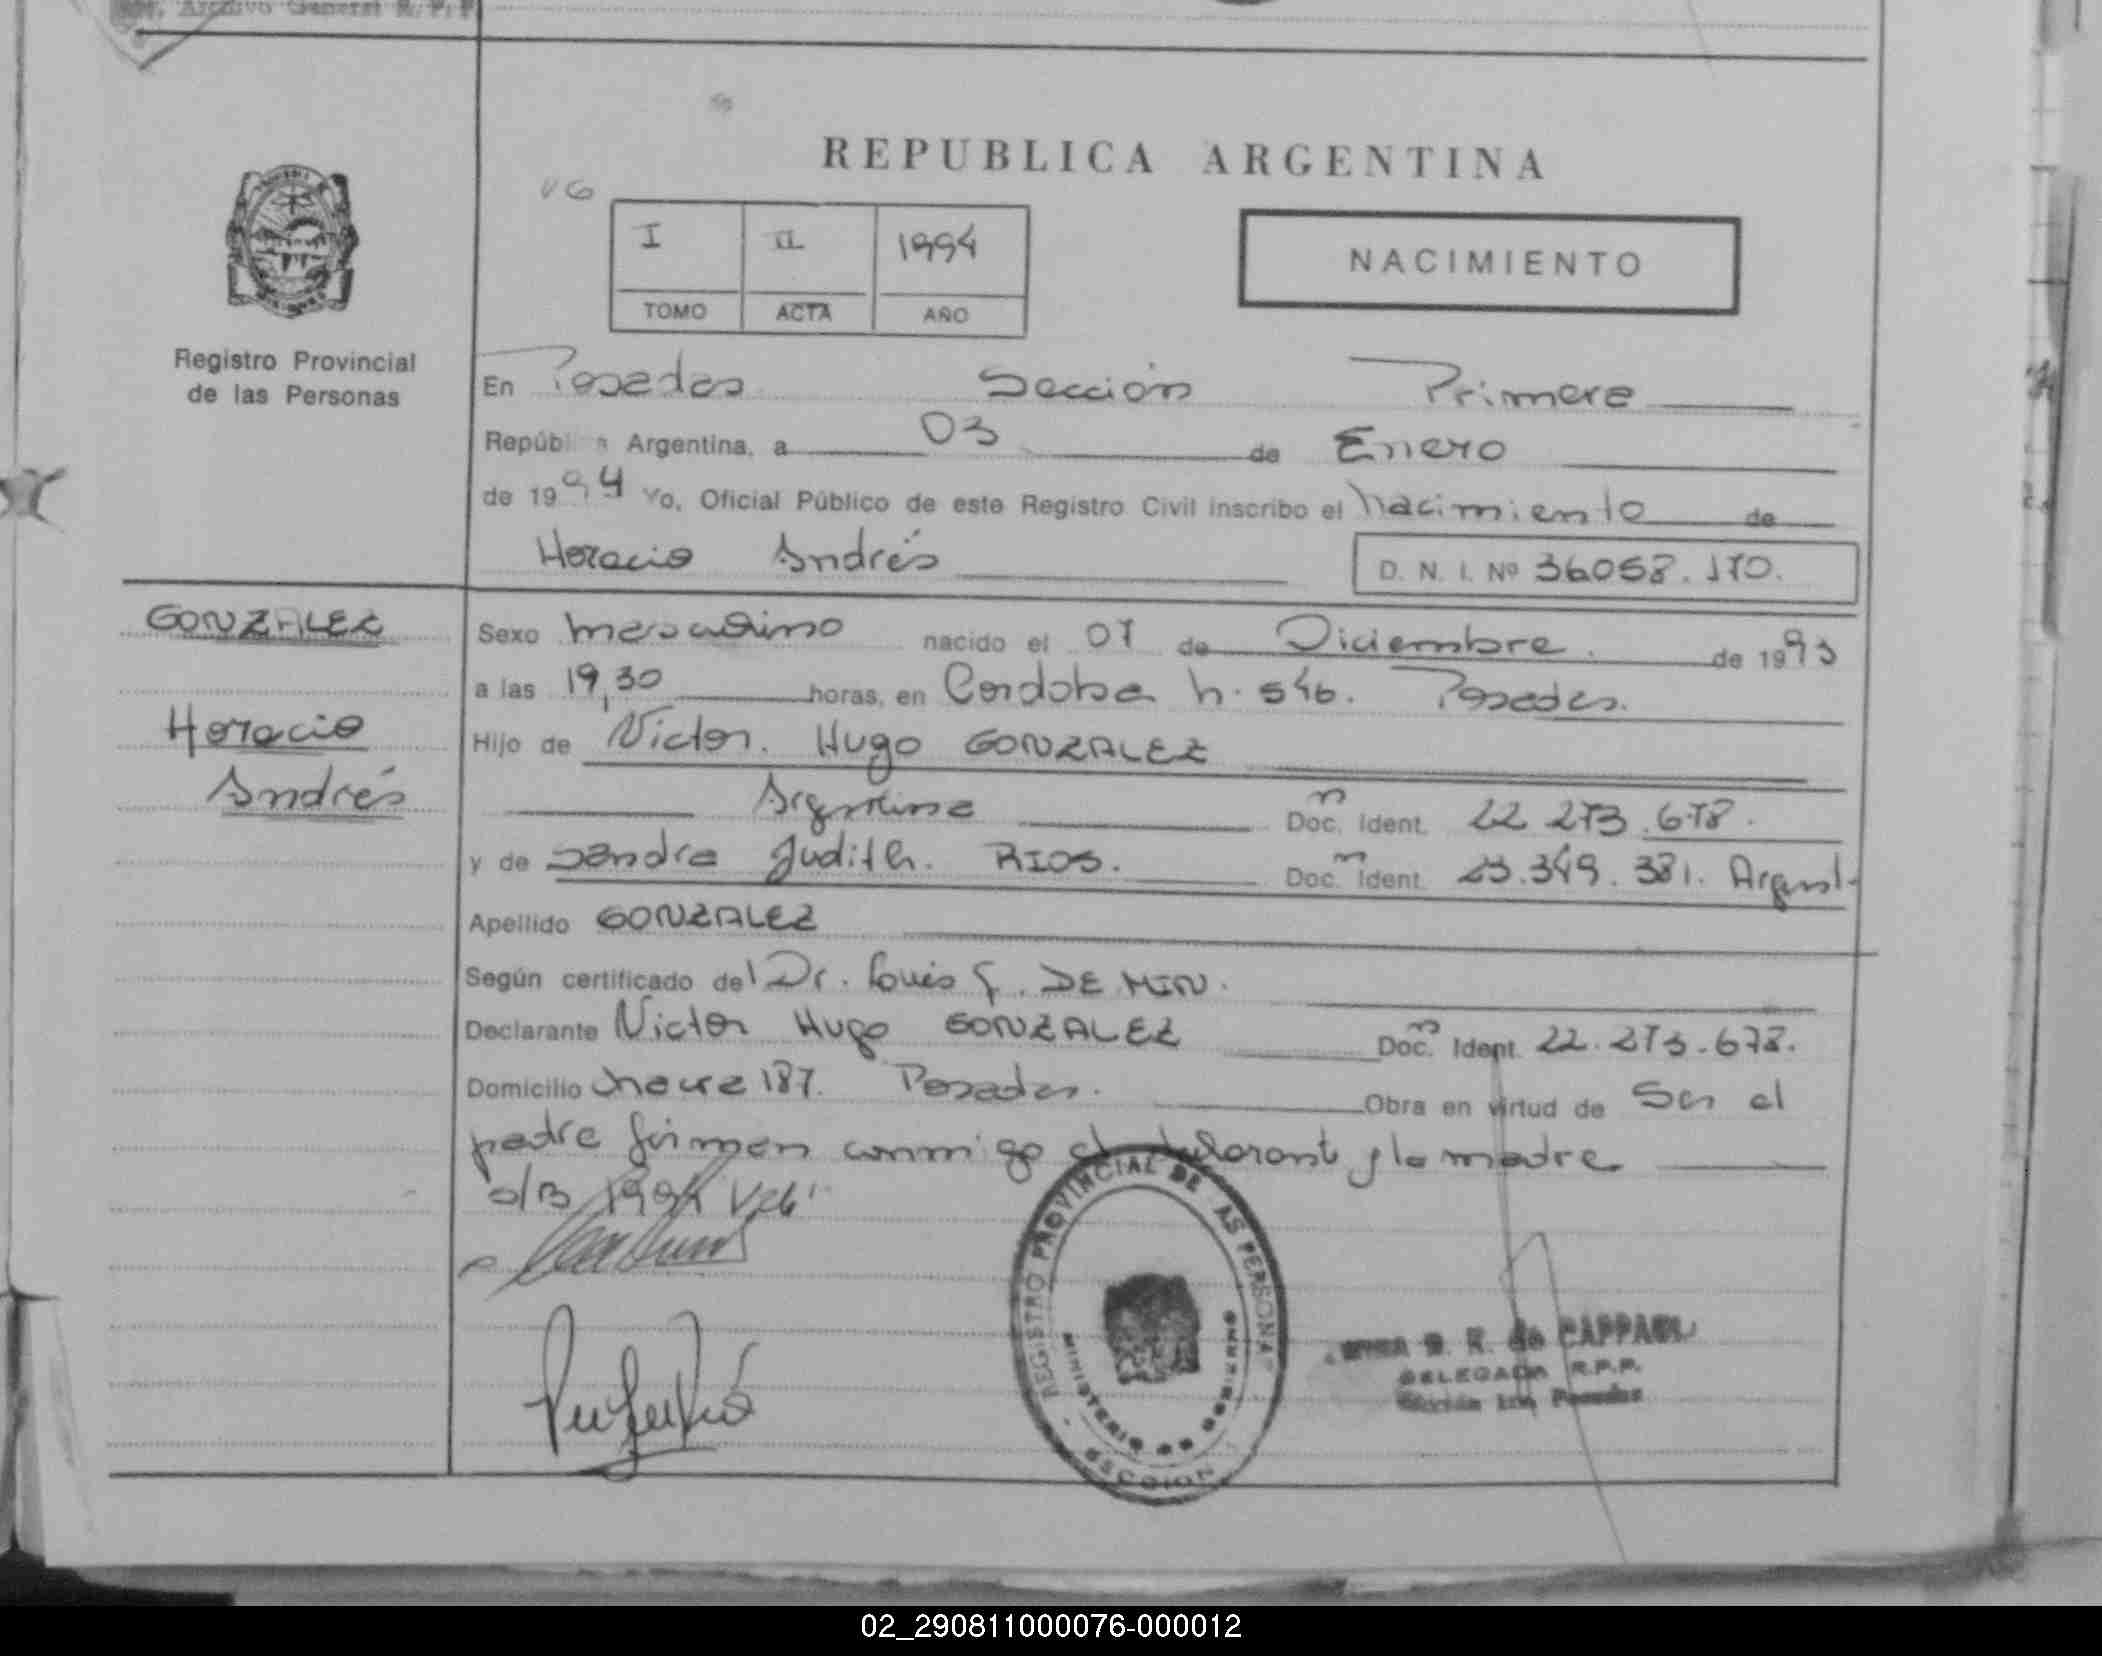 Archivo General R. P. P.
REPUBLICA ARGENTINA
VG
I II 1994
TOMO ACTA AÑO
NACIMIENTO
Registro Provincial
de las Personas
En Posadas Sección Primera
República Argentina, a 03 de Enero
de 1994 Yo, Oficial Público de este Registro Civil inscribo el nacimiento de
Horacio Andrés
D. N. I. Nº 36058.170.
GONZALEZ
Horacio
Andrés
Sexo masculino nacido el 07 de Diciembre de 1993
a las 19,30 horas, en Cordoba n. 546. Posadas.
Hijo de Victor Hugo GONZALEZ
Argentina Doc. Ident. 22 273.678.
y de Sandra Judith RIOS. Doc. Ident. 23.349.381. Argent.
Apellido GONZALEZ
Según certificado del Dr. Louis G. DE MIN.
Declarante Victor Hugo GONZALEZ Doc. Ident. 22.273.678.
Domicilio chacra 187. Posadas. Obra en virtud de Ser el
padre firman conmigo el declarante y la madre
REGISTRO PROVINCIAL DE LAS PERSONAS
MINISTERIO DE GOBIERNO
SECCION
de CAPPAGLI
DELEGADA R.P.P.
Sección 1ra Posadas
02_290811000076-000012